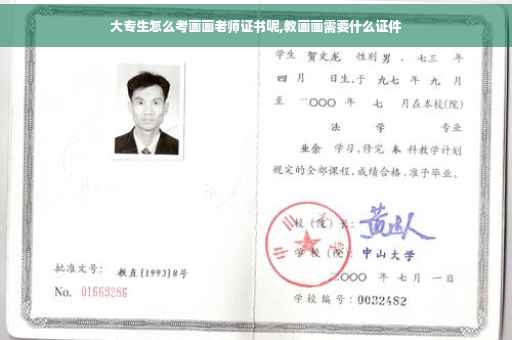 大专生怎么考画画老师证书呢,教画画需要什么证件
学生 贺文龙 性别 男 、七三 年
四 月 日生,于 九七 年 九 月
至 二〇〇〇 年 七 月在本校(院)
法 学 专业
业余 学习,修完 本 科教学计划
规定的全部课程,成绩合格,准予毕业。
校(院)长:
学校(院): 中山大学
二〇〇〇 年 七 月 一 日
学校编号: 0032482
批准文号: 教直(1993)8号
No. 01669286
中山大学